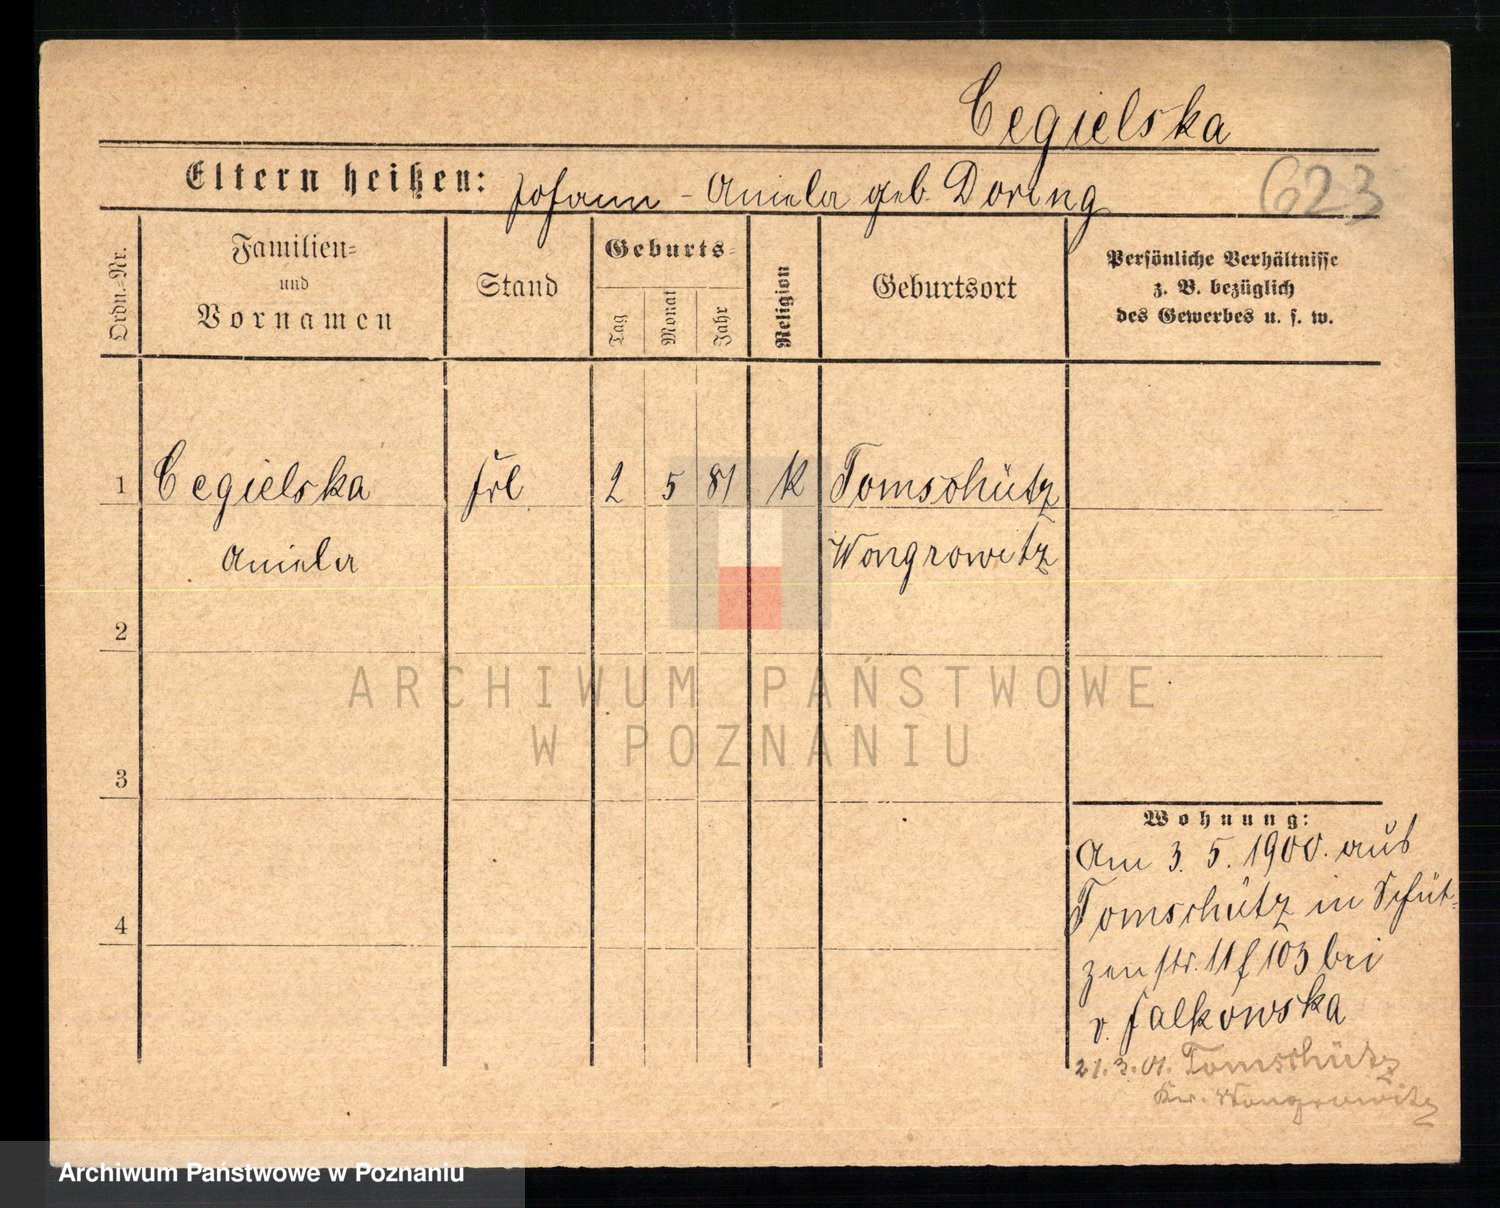 Cegielska
Eltern heißen: Johann - Aniela geb. Doring
623
Ordn.-Nr.
Familien-
und
Vornamen
Stand
Geburts-
Tag
Monat
Jahr
Religion
Geburtsort
Persönliche Verhältnisse
z. B. bezüglich
des Gewerbes u. s. w.
1 Cegielska Frl 2 5 81 K Tomschütz
Aniela Wongrowitz
2
ARCHIWUM PAŃSTWOWE
W POZNANIU
3
Wohnung:
Am 3. 5. 1900. aus
Tomschütz in Schüt-
zenstr. 11 f 103 bei
v. Falkowska
4
21.3.01. Tomschütz
Kr. Wongrowitz
Archiwum Państwowe w Poznaniu